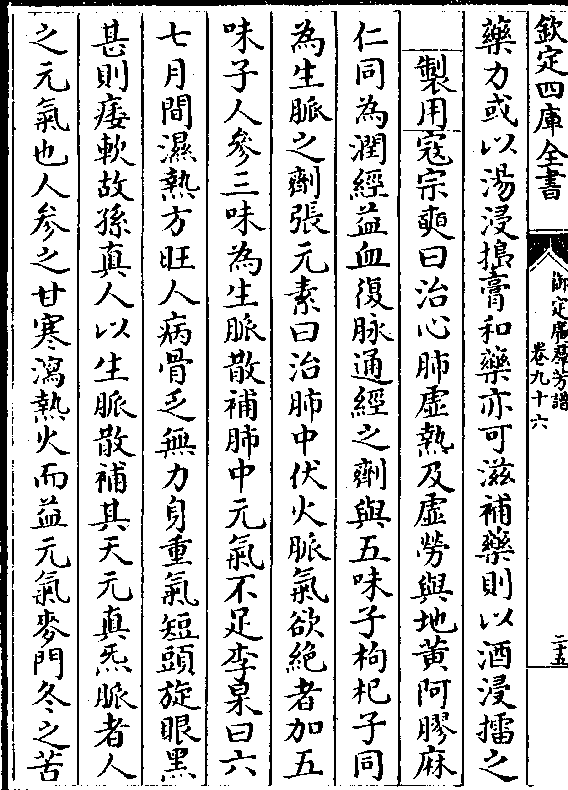 欽定四庫全書
御定廣羣芳譜
卷九十六
二十五
藥力或以湯浸搗膏和藥亦可滋補藥則以酒浸擂之
製用寇宗奭曰治心肺虛熱及虛勞與地黃阿膠麻
仁同為潤經益血復脉通經之劑與五味子枸杞子同
為生脈之劑張元素曰治肺中伏火脈氣欲絶者加五
味子人參三味為生脈散補肺中元氣不足李杲曰六
七月間濕熱方旺人病骨乏無力身重氣短頭旋眼黑
甚則痿軟故孫真人以生脈散補其天元真炁脈者人
之元氣也人參之甘寒瀉熱火而益元氣麥門冬之苦